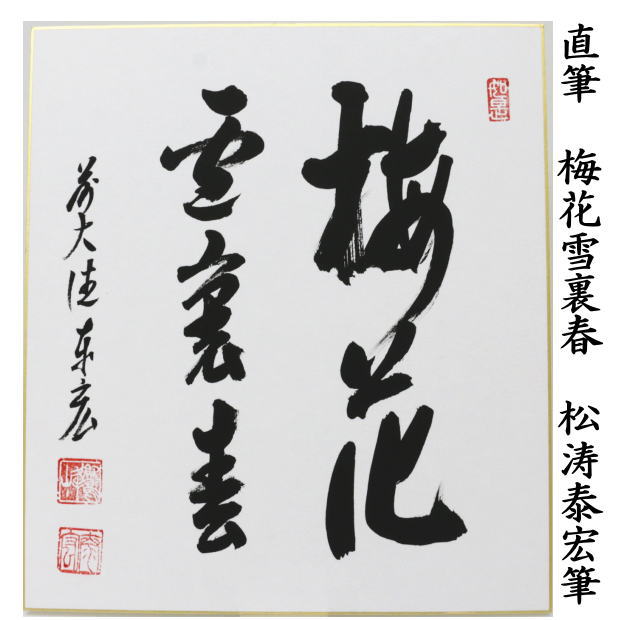 直筆 梅花雪裏春 松涛泰宏筆
如意
梅花
雪裏春
前大徳泰宏